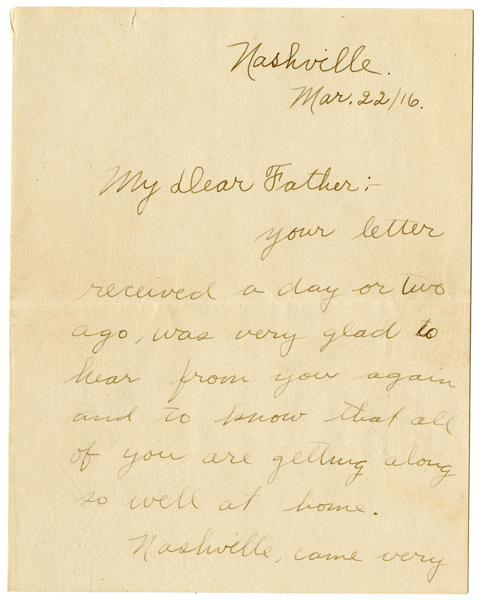 Nashville.
Mar. 22/16.
My Dear Father:-
your letter
received a day or two
ago, was very glad to
hear from you again
and to know that all
of you are getting along
so well at home.
Nashville, came very